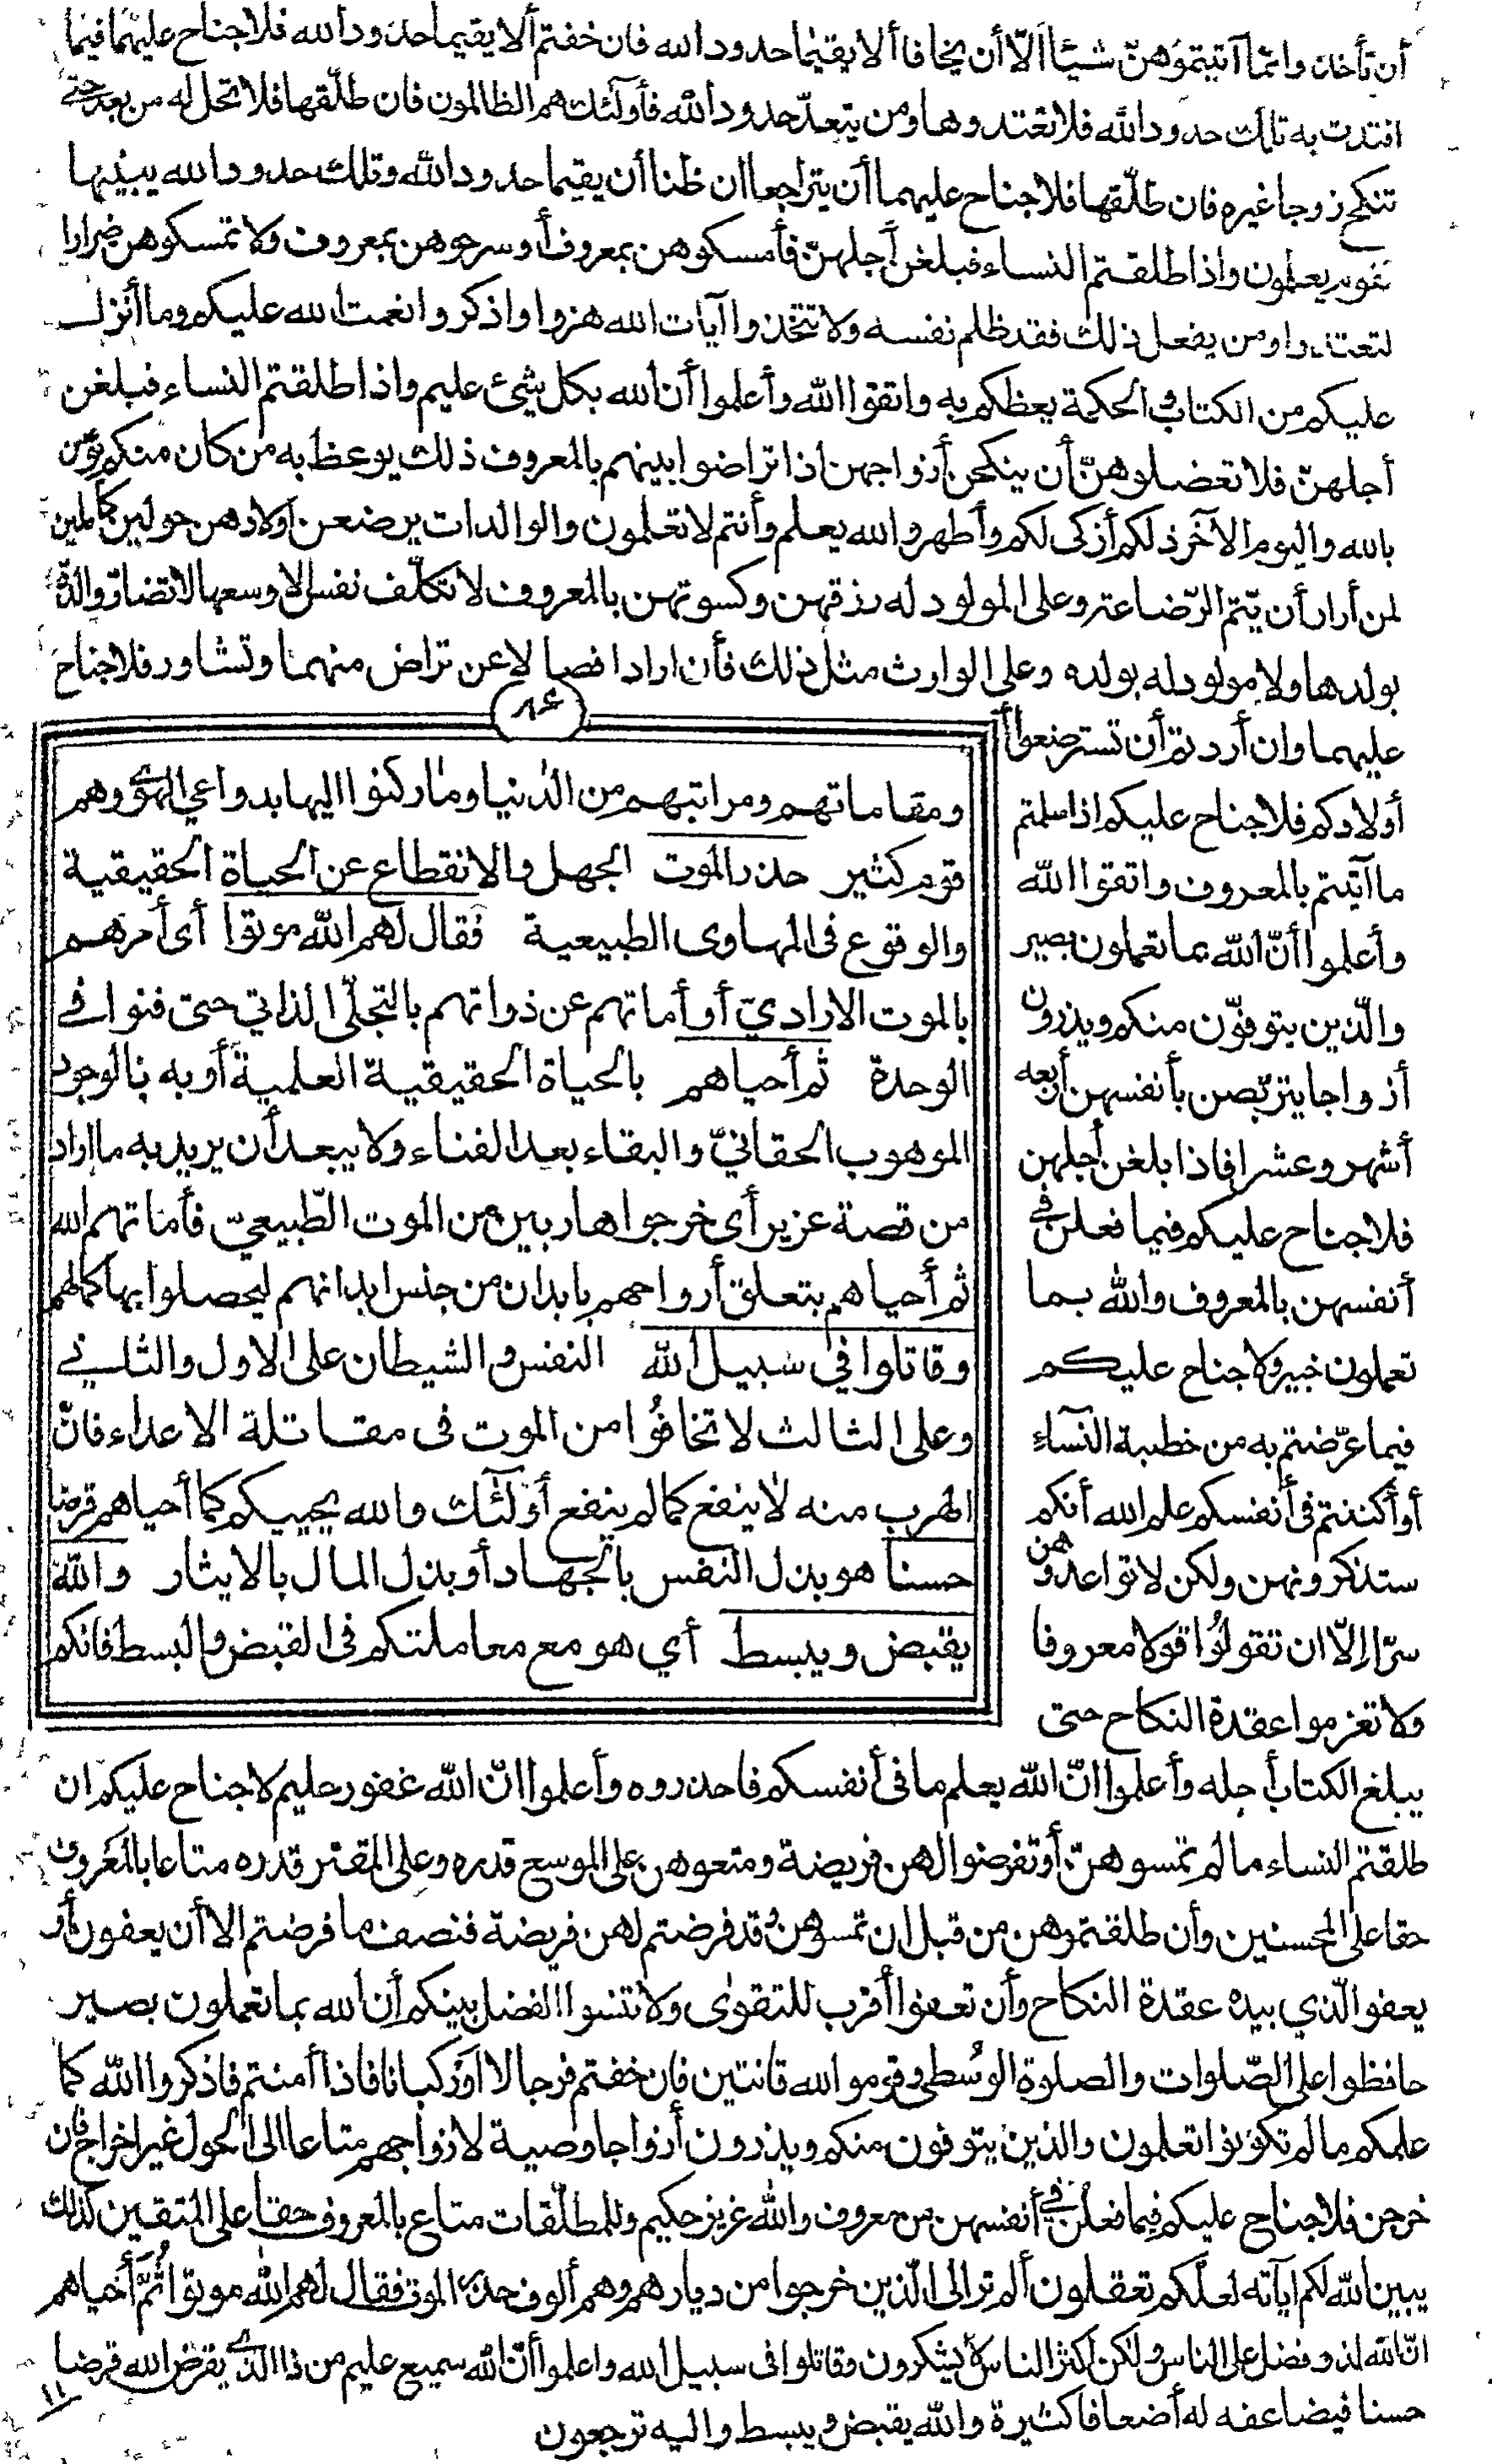 أن تأخذوا ممّا آتيتموهنّ شيئا ألّا أن يخافا ألا يقيما حدود الله فان خفتم ألا يقيما حدود الله فلا جناح عليهما فيما
افتدت به تلك حدود الله فلا تعتدوها ومن يتعدّ حدود الله فأولئك هم الظالمون فان طلّقها فلا تحل له من بعد حتى
تنكح زوجا غيره فان طلّقها فلا جناح عليهما أن يتراجعا ان ظنا أن يقيما حدود الله وتلك حدود الله يبينها
لقوم يعلمون واذا طلقتم النساء فبلغن أجلهنّ فأمسكوهن بمعروف أو سرحوهن بمعروف ولا تمسكوهن ضرارا
لتعتدوا ومن يفعل ذلك فقد ظلم نفسه ولا تتخذوا آيات الله هزوا واذكروا نعمت الله عليكم وما أنزل
عليكم من الكتاب والحكمة يعظكم به واتقوا الله وأعلموا أن الله بكل شئ عليم واذا طلقتم النساء فبلغن
أجلهنّ فلا تعضلوهنّ أن ينكحن أزواجهن اذا تراضوا بينهم بالمعروف ذلك يوعظ به من كان منكم يؤمن
بالله واليوم الآخر ذلكم أزكى لكم وأطهر والله يعلم وأنتم لا تعلمون والوالدات يرضعن اولادهن حولين كاملين
لمن أراد أن يّتم الرّضاعة وعلى المولود له رزقهن وكسوتهن بالمعروف لا تكلّف نفس الا وسعها لا تضارّ والدة
بولدها ولا مولود له بولده وعلى الوارث مثل ذلك فأن ارادا فصالا عن تراض منهما وتشاور فلا جناح
عليهما وان أردتم أن تسترضعوا
أولادكم فلا جناح عليكم اذا سلمتم
ما آتيتم بالمعروف واتقوا الله
وأعلموا أنّ الله بما تعملون بصير
والّذين يتوفّون منكم ويذرون
أزواجا يتربّصن بأنفسهن أربعه
أشهر وعشرا فاذا بلغن أجلهن
فلا جناح عليكم فيما فعلن في
أنفسهن بالمعروف والله بما
تعملون خبير ولا جناح عليكم
فيما عرّضتم به من خطبة النساء
أو أكننتم في أنفسكم علم الله أنكم
ستذكرونهن ولكن لا تواعدوهن
سرّا الّا ان تقولوا قولا معروفا
ولا تعزموا عقدة النكاح حتى
٨٤
ومقاماتهم ومراتبهم من الدنيا وما ركنوا اليها بدواعي الهوى وهم
قوم كثير حذر الموت الجهل والانقطاع عن الحياة الحقيقية
والوقوع فى المهاوى الطبيعية فقال لهم الله موتوا أى أمرهم
بالموت الاراديّ أو أماتهم عن ذواتهم بالتجلّى الذاتي حتى فنوا في
الوحدة ثم أحياهم بالحياة الحقيقية العلمية أو به بالوجود
الموهوب الحقانيّ والبقاء بعد الفناء ولا يبعد أن يريد به ما اراد
من قصة عزير أى خرجوا هاربين من الموت الطّبيعيّ فأماتهم الله
ثم أحياهم بتعلق أرواحهم بابدان من جنس ابدانهم ليحصلوا بها كمالهم
وقاتلوا في سبيل الله النفس والشيطان على الاول والثاني
وعلى الثالث لا تخافوا من الموت فى مقاتلة الاعداء فانّ
الهرب منه لا ينفع كما لم ينفع أولئك والله يحييكم كما أحياهم قرضا
حسنا هو بذل النفس بالجهاد أو بذل المال بالايثار والله
يقبض ويبسط أي هو مع معاملتكم فى القبض والبسط فانكم
يبلغ الكتاب أجله وأعلموا انّ الله يعلم ما فى أنفسكم فاحذروه وأعلموا انّ الله غفور حليم لا جناح عليكم ان
طلقتم النساء ما لم تمسوهنّ أو تفرضوا لهن فريضة ومتعوهن على الموسع قدره وعلى المقتر قدره متاعا بالمعروف
حقا على المحسنين وأن طلقتموهن من قبل ان تمسوهن وقد فرضتم لهن فريضة فنصف ما فرضتم الا أن يعفون أو
يعفو الّذي بيده عقدة النكاح وأن تعفوا أقرب للتقوى ولا تنسوا الفضل بينكم أن الله بما تعملون بصير
حافظوا على الصّلوات والصلوة الوسطى وقوموا الله قانتين فان خفتم فرجالا او ركبانا فاذا أمنتم فاذكروا الله كما
علمكم ما لم تكونوا تعلمون والذين يتوفون منكم ويذرون أزواجا وصية لازواجهم متاعا الى الحول غير اخراج فان
خرجن فلا جناح عليكم فيما فعلن في أنفسهن من معروف والله عزيز حكيم وللمطلّقات متاع بالمعروف حقا على المتقين كذلك
يبين الله لكم آياته لعلّكم تعقلون ألم تر الى الّذين خرجوا من ديارهم وهم ألوف حذر الموت فقال لهم الله موتوا ثمّ أحياهم
انّ الله لذو فضل على الناس ولكن أكثر الناس لا يشكرون وقاتلوا فى سبيل الله واعلموا أنّ الله سميع عليم من ذا الّذى يقرض الله قرضا
حسنا فيضاعفه له أضعافا كثيرة والله يقبض ويبسط واليه ترجعون
١١